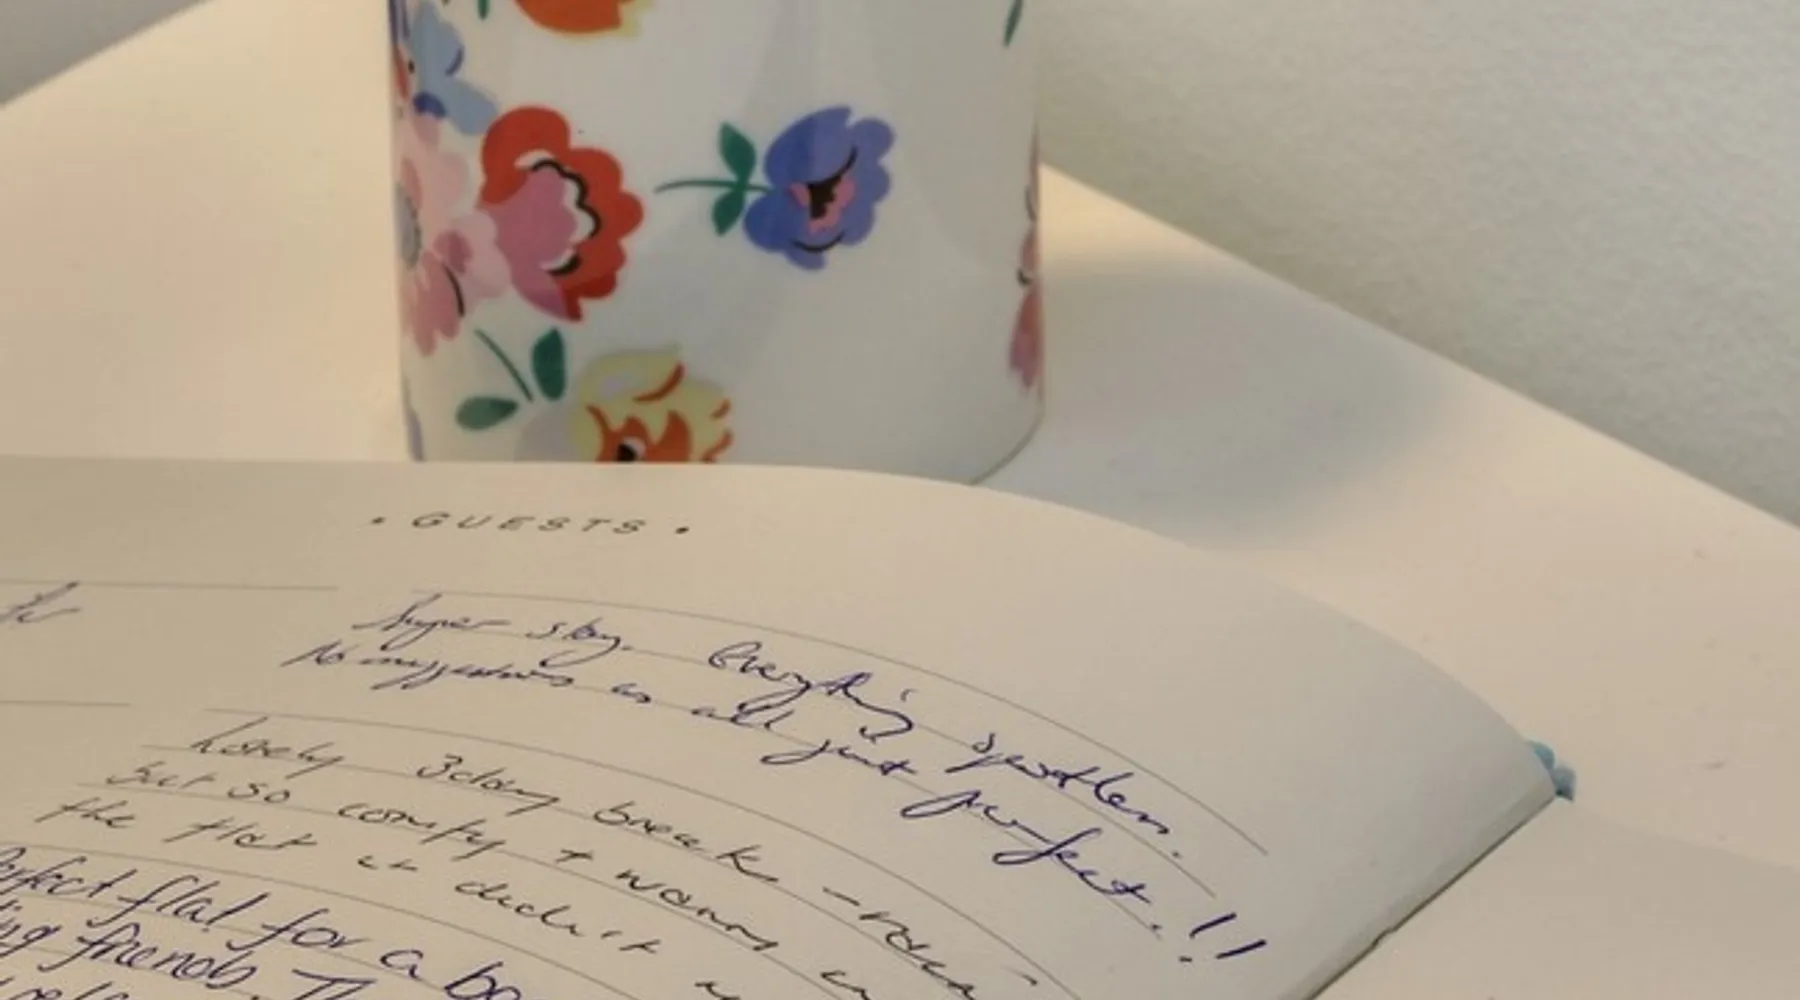 • GUESTS •
Super stay. Everything spotless.
No suggestions as all just perfect.!!
Lovely 3day break - rain
but so comfy + warm
the flat we didn't
Perfect flat for a
friends. Th